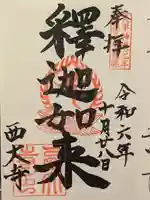 奉拝
令和六年
十月廿八日
釋迦如来
西大寺